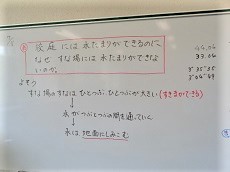 校庭には水たまりができるのに、
なぜ すな場には水たまりができな
いのか。
よそう
すな場のすなは、ひとつぶ、ひとつぶが大きい(すきまができる)
↓
水がつぶとつぶの間を通っていく
↓
水は地面にしみこむ